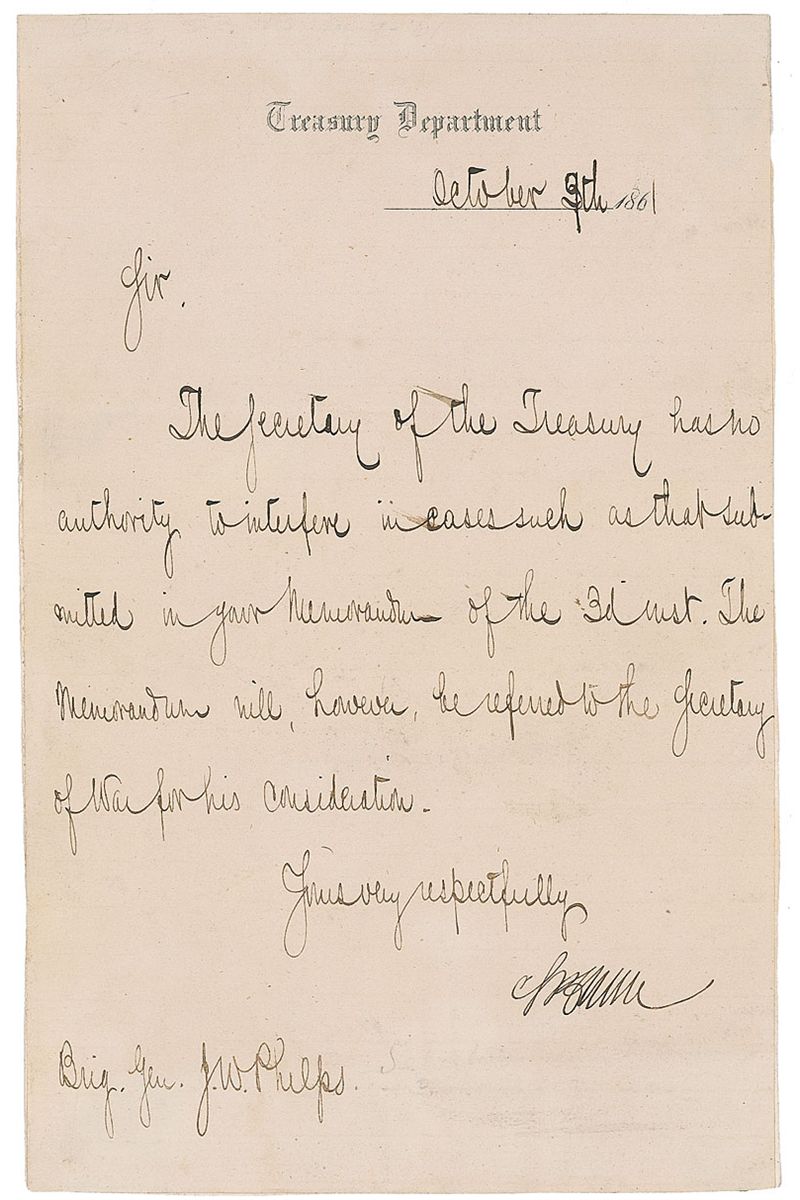 Treasury Department
October 9th 1861
Sir.
The Secretary of the Treasury has no
authority to interfere in cases such as that sub-
mitted in your Memorandum of the 3d inst. The
Memorandum will, however, be referred to the Secretary
of War for his consideration.
Yours very respectfully
Brig. Gen. J. W. Phelps.